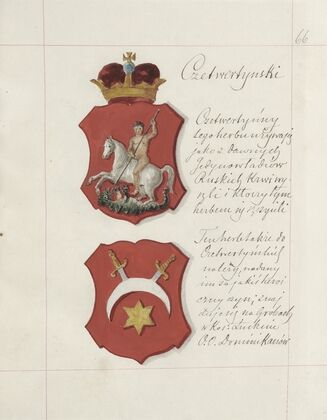 66
Czetwertynski
Czetwertyńscy
tego herbu używają
jako z dawnych
Jedynowładców
Ruskich krwi wy-
szli i którzy tym
herbem się
Ten herb także do
Czetwertyńskich
należy, nadany
im za jakiś heroi
czny czyn; znaj
duje się na grobach
w Koś. Łuckim
O.O. Dominikanów